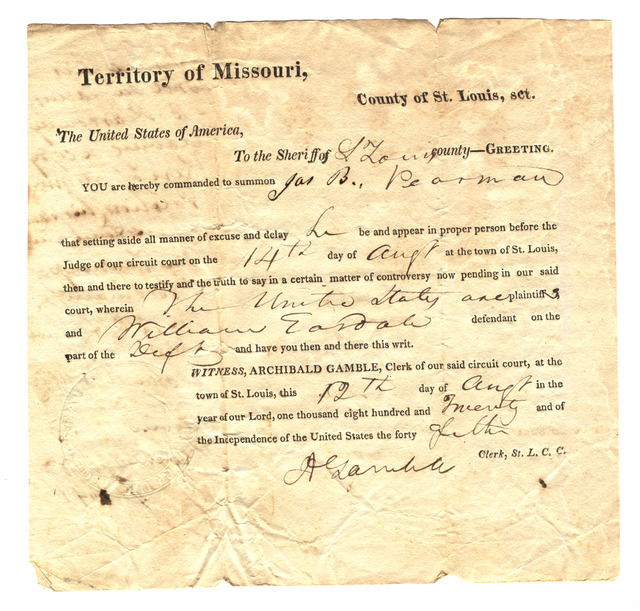 Territory of Missouri,
County of St. Louis, sct.
The United States of America,
To the Sheriff of St Louis county—GREETING.
YOU are hereby commanded to summon Jas B., Pearman
that setting aside all manner of excuse and delay he be and appear in proper person before the
Judge of our circuit court on the 14th day of Augt at the town of St. Louis,
then and there to testify and the truth to say in a certain matter of controversy now pending in our said
court, wherein The United States are plaintiffs
and William Easdale defendant on the
part of the Deft and have you then and there this writ.
WITNESS, ARCHIBALD GAMBLE, Clerk of our said circuit court, at the
town of St. Louis, this 12th day of Augt in the
year of our Lord, one thousand eight hundred and Twenty and of
the Independence of the United States the forty fifth
A Gamble Clerk, St. L. C. C.